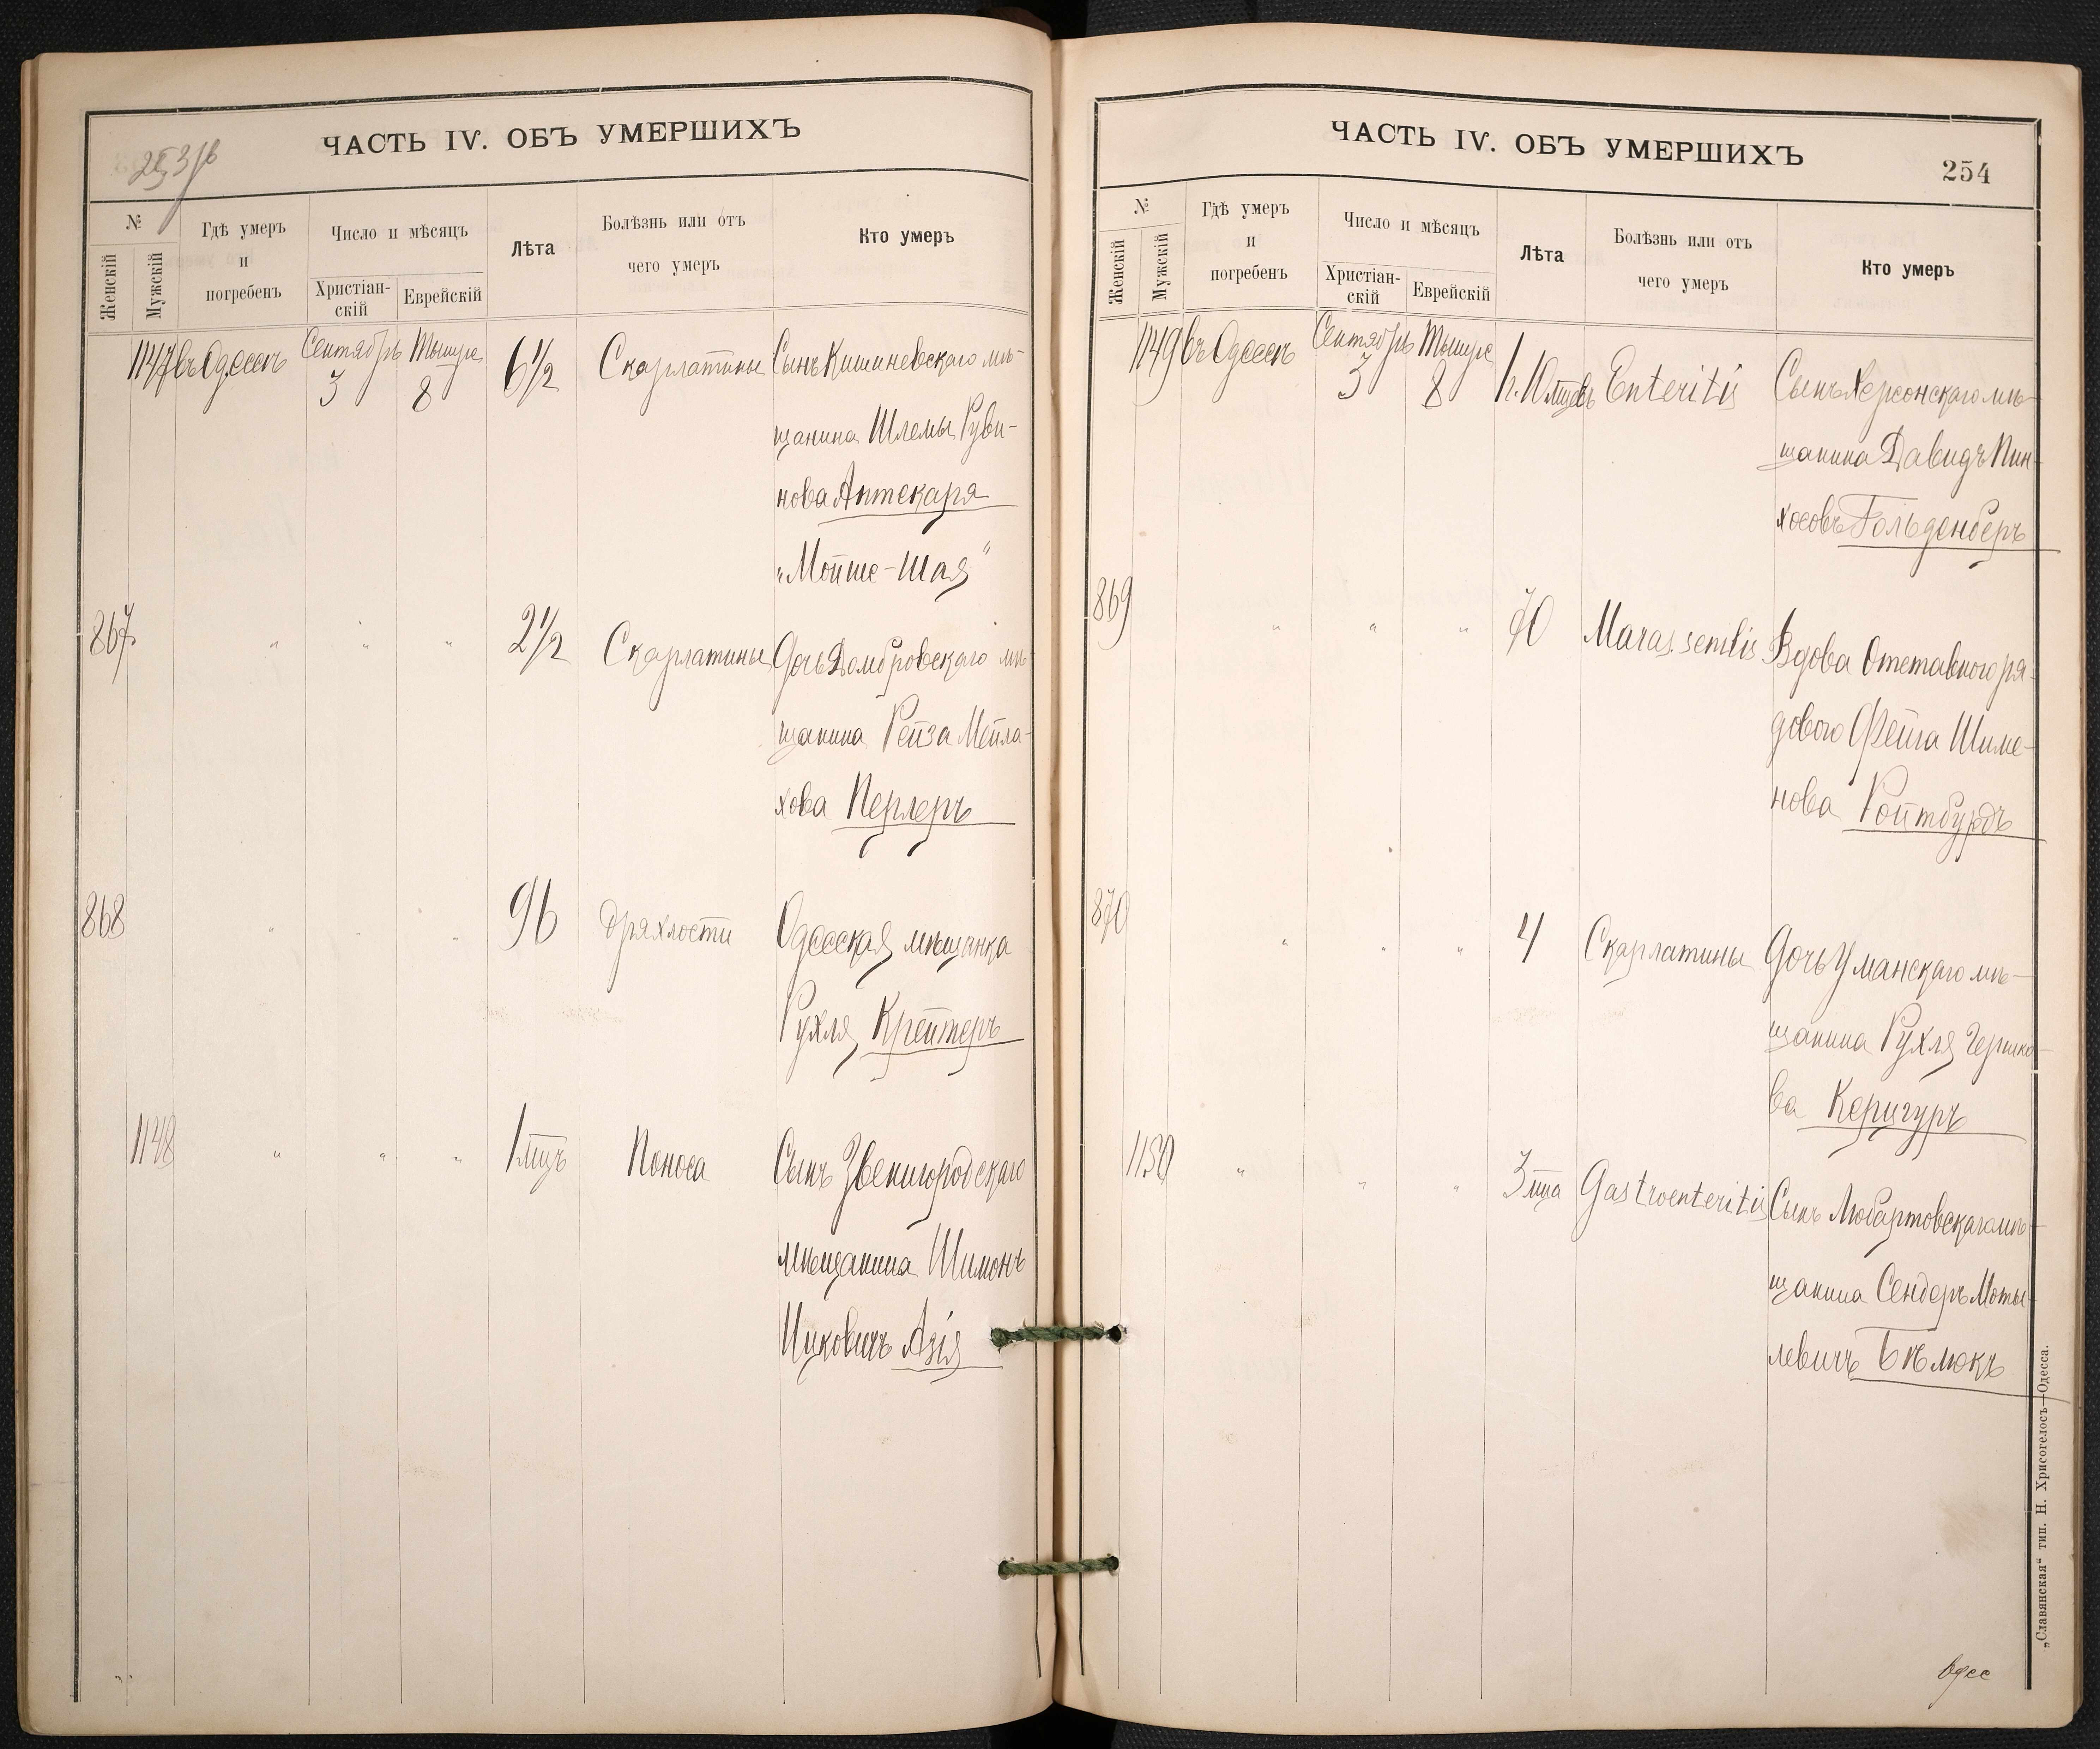 ЧАСТЬ IV. ОБЪ УМЕРШИХЪ
№
Женскій
Мужскій
Гдѣ умеръ
и
погребенъ
Число и мѣсяцъ
Христіан-
скій
Еврейскій
Лѣта
Болѣзнь или отъ
чего умеръ
Кто умеръ
1147 въ Одессѣ Сентябрь 3 Тышре 8 6 1/2 Скарлатины Сынъ Кишиневскаго мѣ-
щанина Шлемы Руви-
нова Аптекаря
„Мойше-Шая“
867 " " " 2 1/2 Скарлатины Дочь Домбровскаго мѣ-
щанина Рейза Мейла-
хова Перлеръ
868 " " " 96 Дряхлости Одесская мѣщанка
Рухля Крейтеръ
1148 " " " 1 мцъ Поноса Сынъ Звенигородскаго
мѣщанина Шимонъ
Ицковичъ Азія
ЧАСТЬ IV. ОБЪ УМЕРШИХЪ
254
№
Женскій
Мужскій
Гдѣ умеръ
и
погребенъ
Число и мѣсяцъ
Христіан-
скій
Еврейскій
Лѣта
Болѣзнь или отъ
чего умеръ
Кто умеръ
1149 въ Одессѣ Сентябрь 3 Тышре 8 1 г. 10 мцевъ Enteritis Сынъ Херсонскаго мѣ-
щанина Давидъ Пин-
хосовъ Гольденберъ
869 " " " 70 Maras. senilis Вдова Отставного ря-
дового Фейга Шиме-
нова Ройтбурдъ
870 " " " 4 Скарлатины Дочь Уманскаго мѣ-
щанина Рухля Гершко-
ва Керцгуръ
1150 " " " 3 мца Gastroenteritis Сынъ Любартовскаго мѣ-
щанина Сендеръ Моты-
левичъ Бѣлюкъ
„Славянская“ тип. Н. Хрисогелосъ—Одесса.